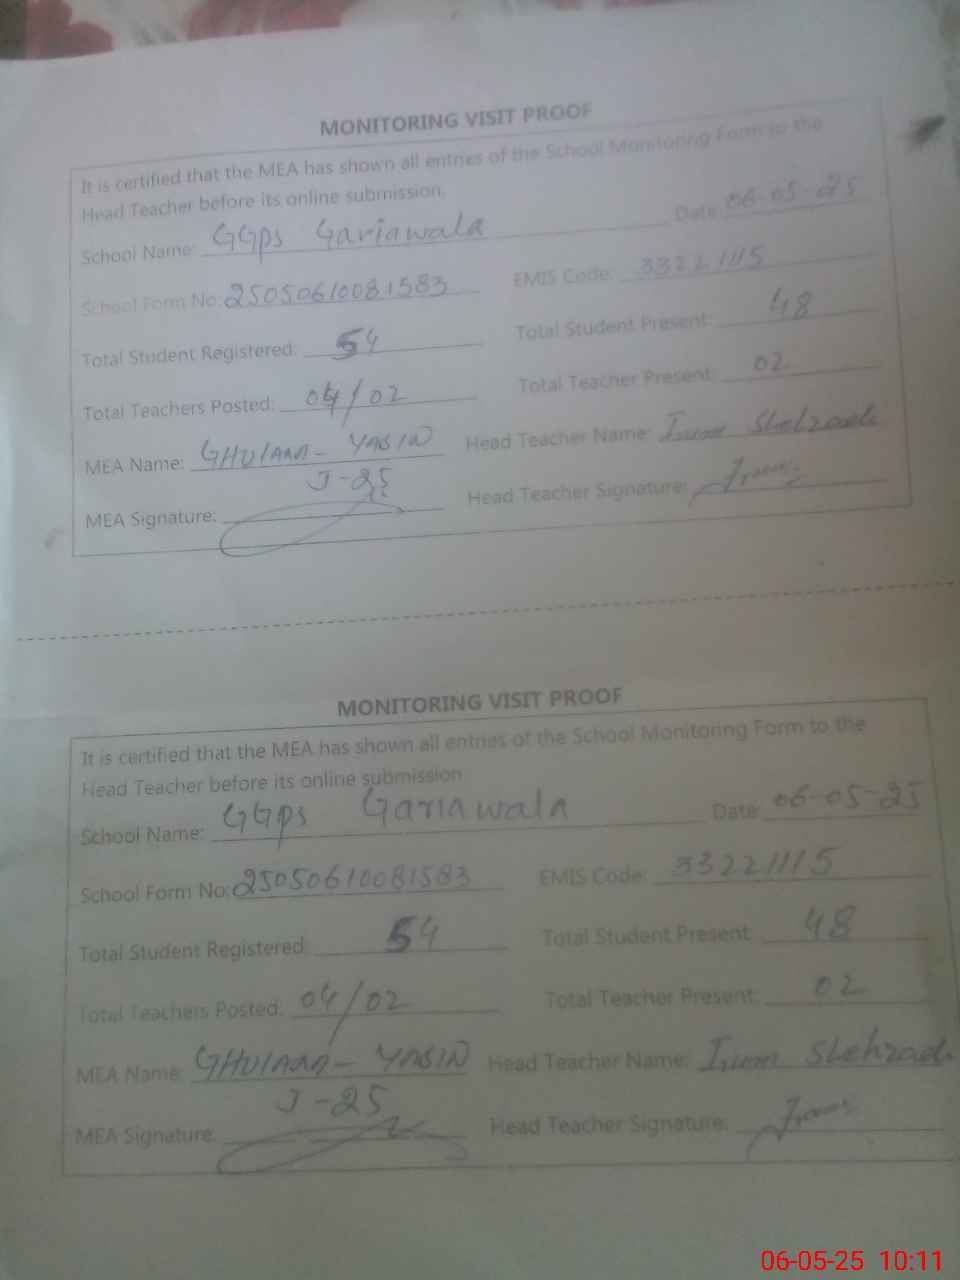 MONITORING VISIT PROOF
It is certified that the MEA has shown all entries of the School Monitoring Form to the
Head Teacher before its online submission.
School Name: GGps Gariawala Date: 06-05-25
School Form No: 25050610081583 EMIS Code: 33221115
Total Student Registered: 54 Total Student Present: 48
Total Teachers Posted: 04/02 Total Teacher Present: 02
MEA Name: GHULAM - YASIN Head Teacher Name: Shehzadi
J-25
MEA Signature: Head Teacher Signature:
MONITORING VISIT PROOF
It is certified that the MEA has shown all entries of the School Monitoring Form to the
Head Teacher before its online submission.
School Name: GGps Gariawala Date: 06-05-25
School Form No: 25050610081583 EMIS Code: 33221115
Total Student Registered: 54 Total Student Present: 48
Total Teachers Posted: 04/02 Total Teacher Present: 02
MEA Name: GHULAM - YASIN Head Teacher Name: Shehzadi
J-25
MEA Signature: Head Teacher Signature:
06-05-25 10:11